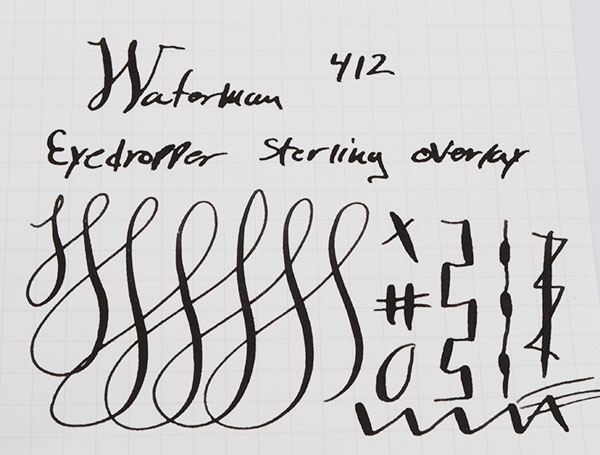 Waterman 412
Eyedropper Sterling overlay
X
#
O